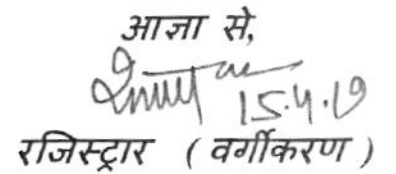 आज्ञा से,
15.4.19
रजिस्ट्रार ( वर्गीकरण )